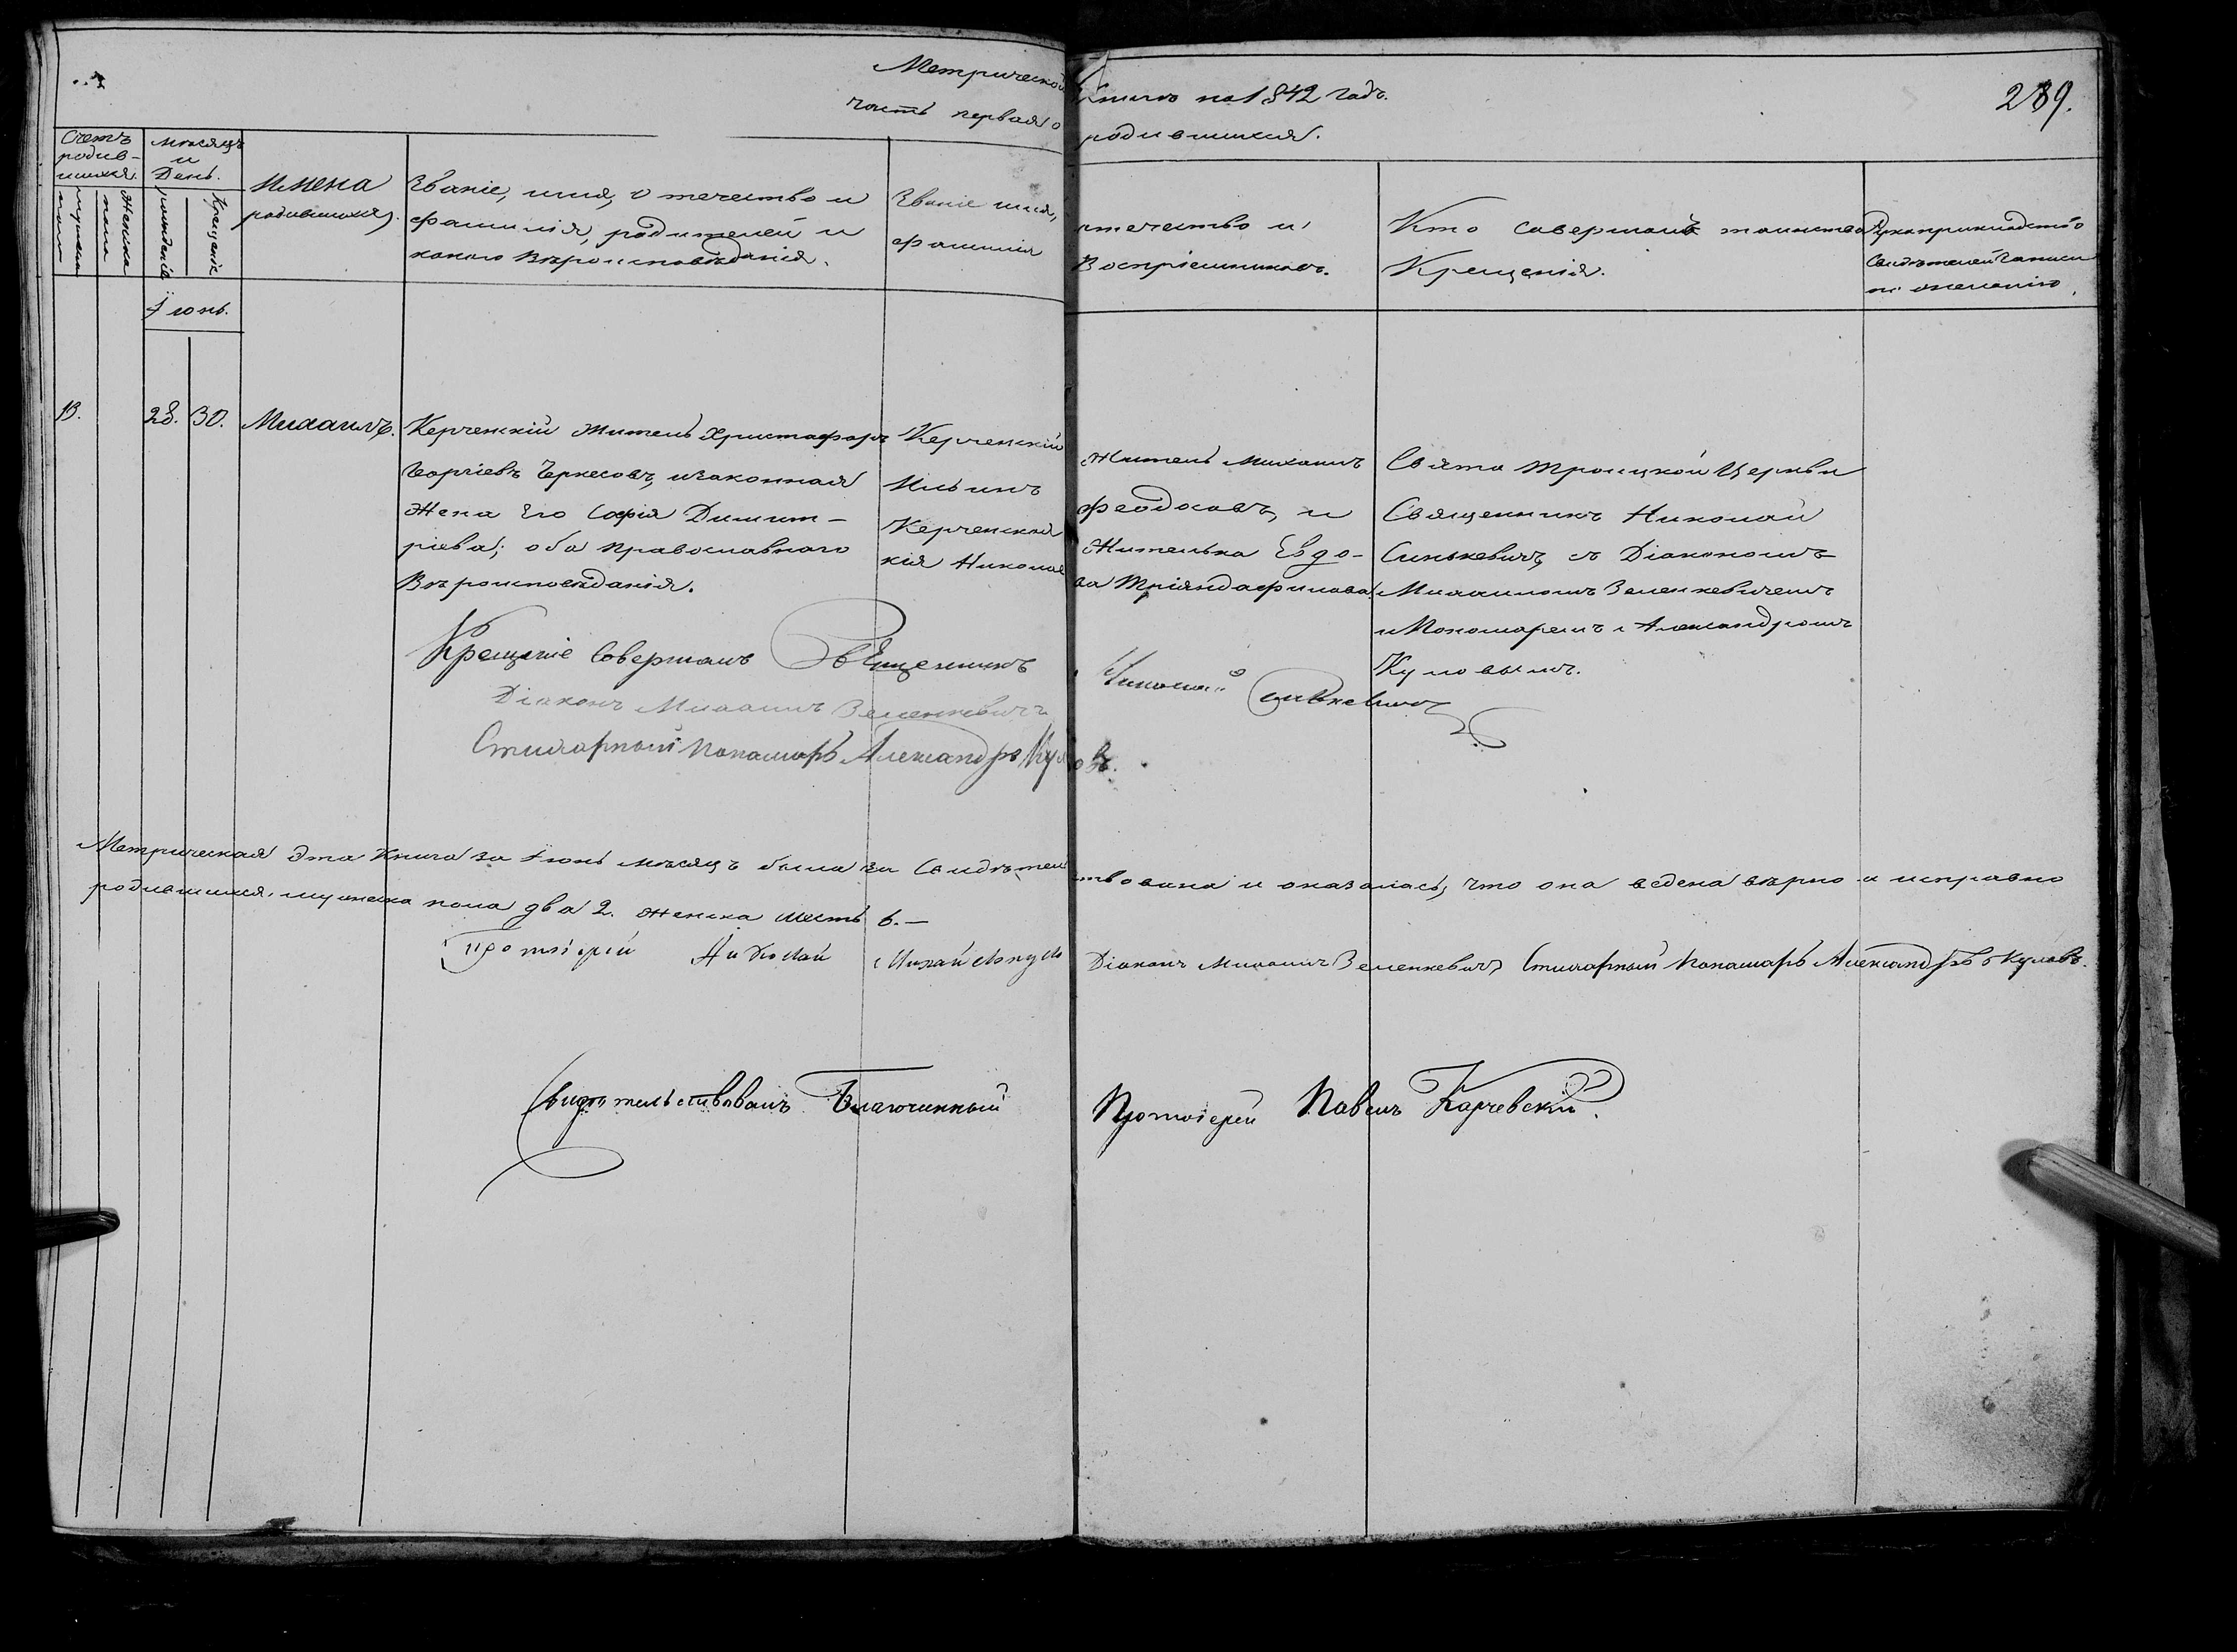 Метрической книги на 1842 годъ.
289.
часть первая о родившихся.
Счетъ родив-шихся.
мужеска пола
Женска пола
мѣсяцъ и День.
рожденія
Крещенія
Имена родившихся.
Званіе, имя, отечество и
фамилія, родителей и
какого вѣроисповѣданія.
Званіе имя, отечество и
фамилія Воспріемниковъ.
Кто совершалъ таинство
Крещенія.
Рукоприкладство
Свидѣтелей записи
по желанію.
Іюнь.
13.
28.
30.
Михаилъ.
Керченскій житель Христофоръ
Георгіевъ Черкесовъ, изаконная
Жена Его Софія Димит-
ріева; оба православнаго
Вѣроисповѣданія.
Керченскій Житель Михаилъ
Ильинъ Феодосовъ, и
Керченская Жителька Евдо-
кія Николаева Тріандафилова.
Свято Троицкой Церкви
Священникъ Николай
Синькевичъ, съ Діакономъ
Михаиломъ Зеленкевичемъ
и Пономаремъ Александромъ
Куловымъ.
Крещеніе Совершалъ Священникъ Николай Синькевичъ
Діаконъ Михаилъ Зеленкевичъ
Стихарный Пономарь Александръ Куловъ.
Метрическая эта Книга за Іюнь мѣсяцъ была за Свидѣтельствована и оказалась, что она ведена вѣрно и исправно
родившихся. мужеска пола два 2. женска шесть 6.—
Протоіерей Николай Діаконъ Михаилъ Зеленкевичъ Стихарный Пономарь Александръ Куловъ.
Свидѣтельствовалъ Благочинный Протоіерей Павелъ Карчевскій.